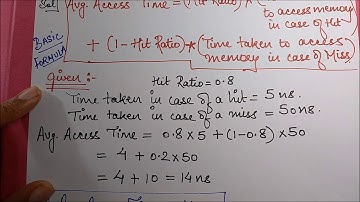 Sol Avg. Access Time = (Hit Ratio) * (Time taken
to access memory
in case of Hit
BASIC
FORMULA
+ (1 - Hit Ratio) * (Time taken to access
memory in case of Miss)
Given :-
Hit Ratio = 0.8
Time taken in case of a hit = 5 ns.
Time taken in case of a miss = 50 ns.
Avg. Access Time = 0.8 x 5 + (1-0.8) x 50
= 4 + 0.2 x 50
= 4 + 10 = 14 ns